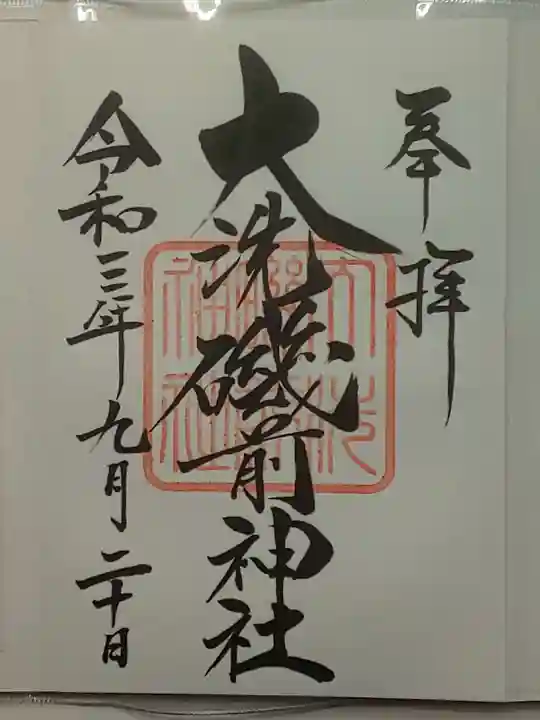 奉拝
大洗磯前神社
令和三年九月二十日